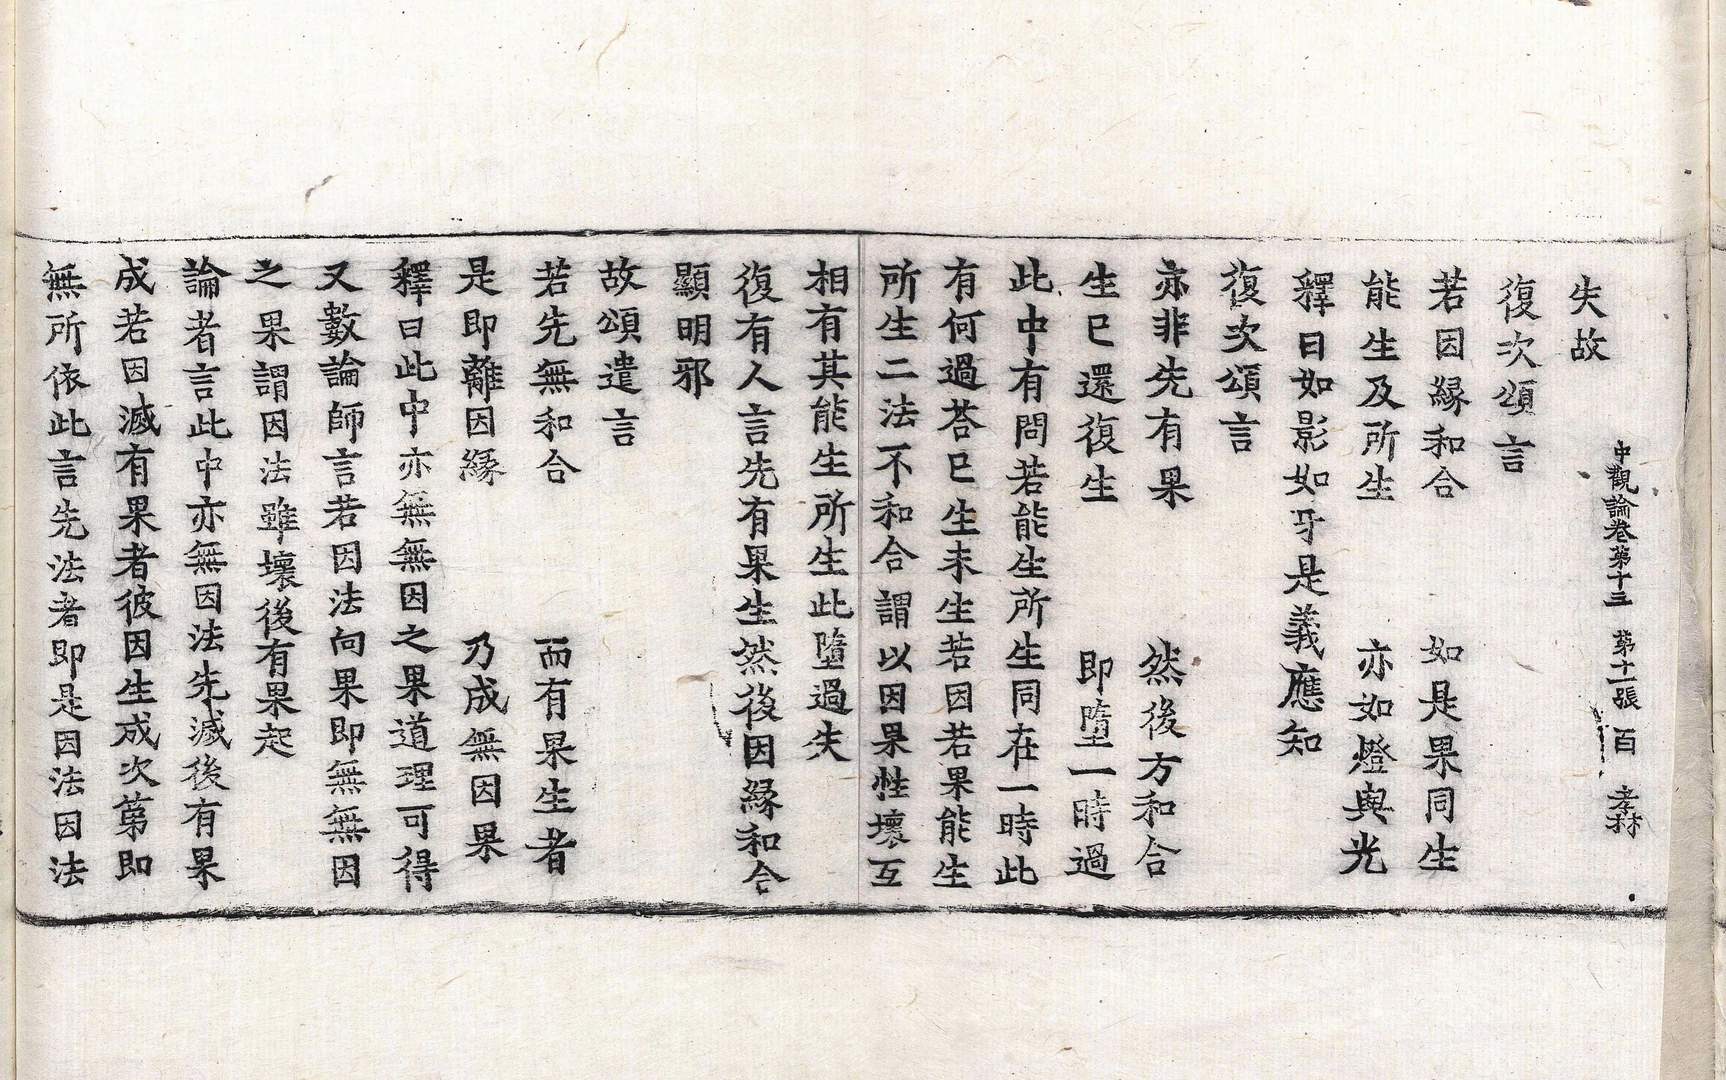 失故
中觀論卷第十三 第十一張 百 孝林
復次頌言
若因緣和合 如是果同生
能生及所生 亦如燈與光
釋曰如影如牙是義應知
復次頌言
亦非先有果 然後方和合
生已還復生 即墮一時過
此中有問若能生所生同在一時此
有何過荅已生未生若因若果能生
所生二法不和合謂以因果性壞互
相有其能生所生此墮過失
復有人言先有果生然後因緣和合
顯明邪
故頌遣言
若先無和合 而有果生者
是即離因緣 乃成無因果
釋曰此中亦無無因之果道理可得
又數論師言若因法向果即無無因
之果謂因法雖壞後有果起
論者言此中亦無因法先滅後有果
成若因滅有果者彼因生成次第即
無所依此言先法者即是因法因法